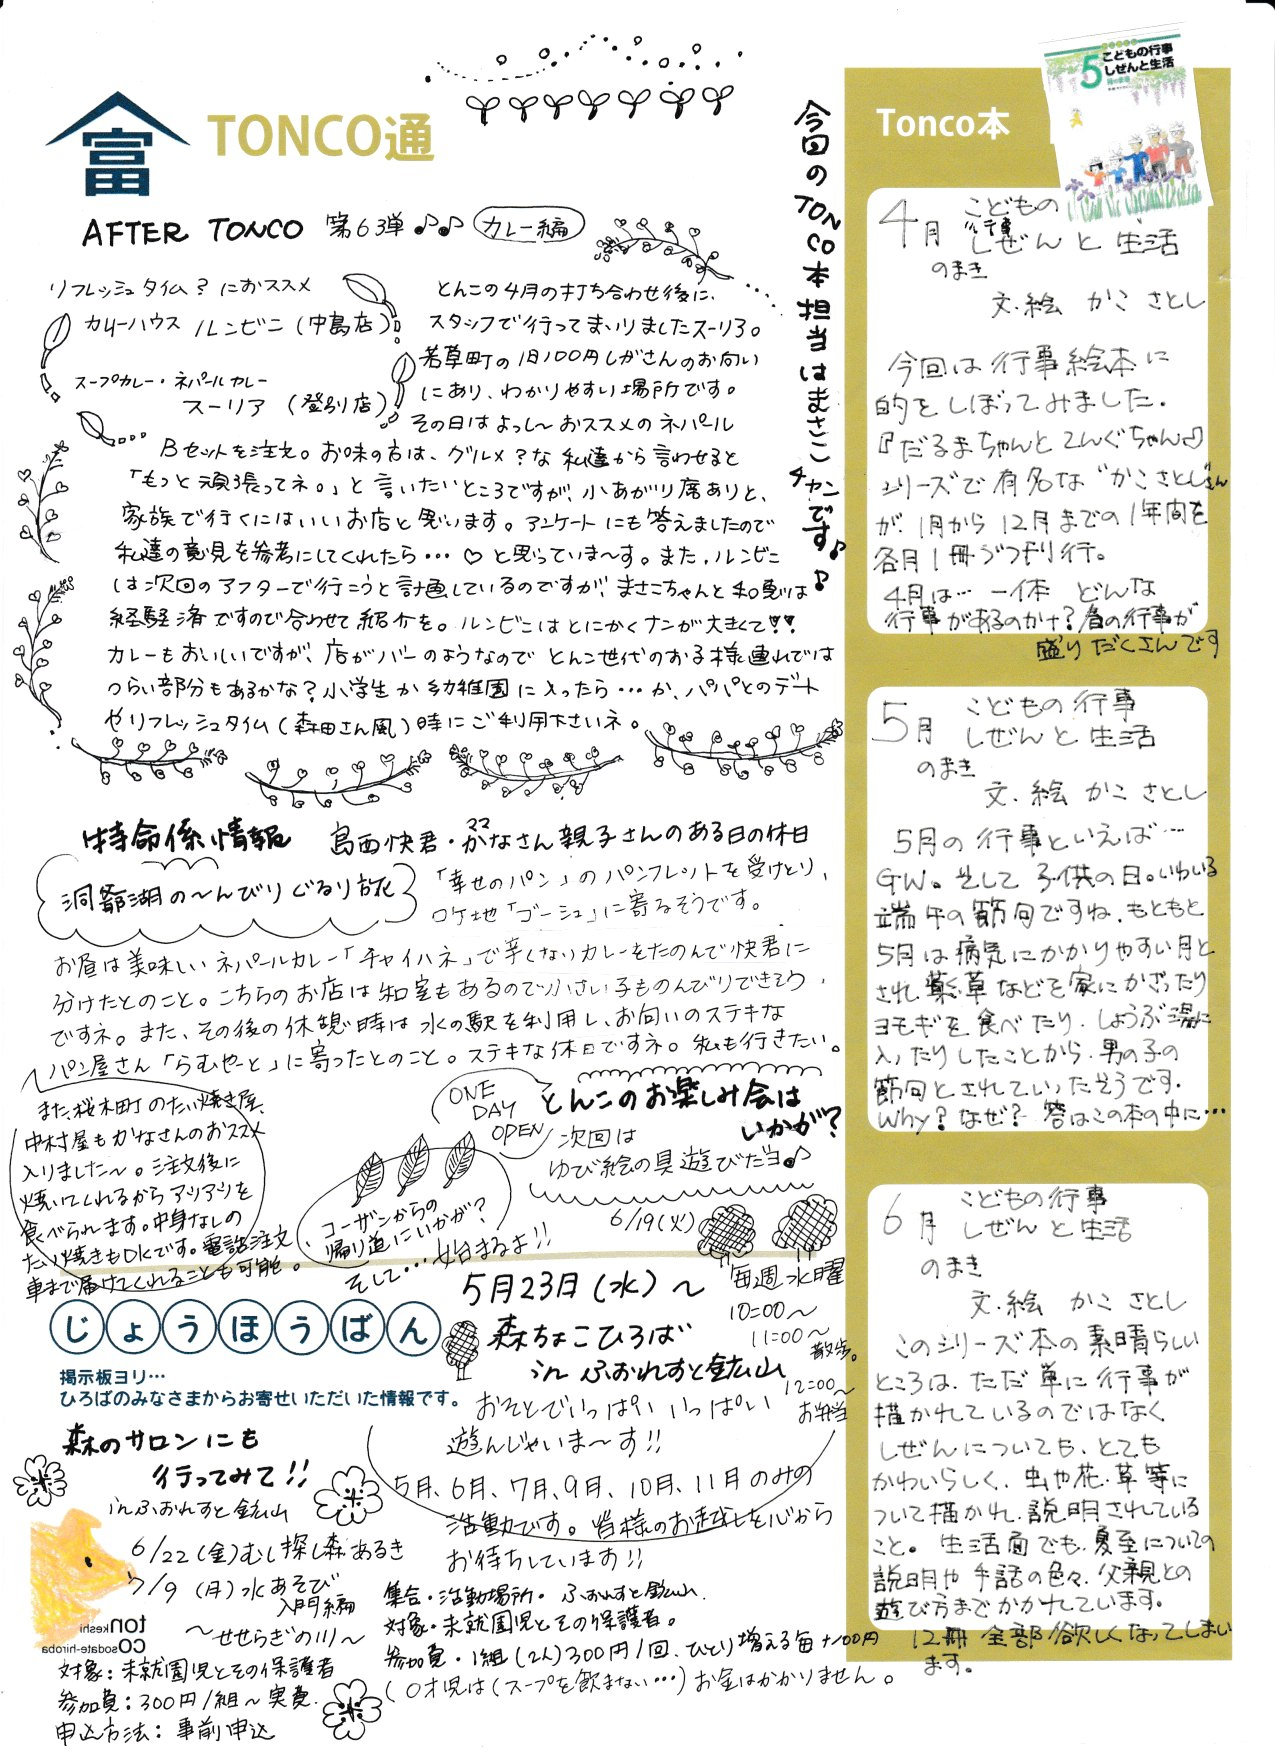 富
TONCO通
AFTER TONCO 第63弾♪♪ カレー編
リフレッシュタイム?におススメ
カリーハウス ルンビニ(中島店)
スープカレー・ネパールカレー
スーリア(登別店)
とんこの4月の打ち合わせ後に、
スタッフで行ってまいりましたスーリア。
若草町の旧100円しがさんのお向い
にあり、わかりやすい場所です。
その日はよっし〜おススメのネパール
Bセットを注文。お味の方は、グルメ?な私達から言わせると
「もっと頑張ってネ。」と言いたいところですが、小あがり席ありと、
家族で行くにはいいお店と思います。アンケートにも答えましたので
私達の意見を参考にしてくれたら…♡と思っていま〜す。また、ルンビニ
は次回のアフターで行こうと計画しているのですが、まさこちゃんと和恵は
経験済ですので合わせて紹介を。ルンビニはとにかくナンが大きくて!!
カレーもおいしいですが、店がバーのようなのでとんこ世代のお子様連れでは
つらい部分もあるかな?小学生か幼稚園に入ったら…か、パパとのデート
やリフレッシュタイム(森田さん風)時にご利用下さいネ。
今回のTONCO本担当はまさこチャンです♪♪
特命係情報 島西快君・かなさん親子さんのある日の休日
ママ
洞爺湖の〜んびりぐるり旅
「幸せのパン」のパンフレットを受けとり、
ロケ地「ゴーシュ」に寄るそうです。
お昼は美味しいネパールカレー「チャイハネ」で辛くないカレーをたのんで快君に
分けたとのこと。こちらのお店は和室もあるので小さい子ものんびりできそう
ですネ。また、その後の休憩時は水の駅を利用し、お向いのステキな
パン屋さん「らむやーと」に寄ったとのこと。ステキな休日ですネ。私も行きたい。
また桜木町のたい焼き屋、
中村屋もかなさんのおススメ
入りました〜。注文後に
焼いてくれるからアツアツを
食べられます。中身なしの
たい焼きもOKです。電話注文、
車まで届けてくれることも可能。
ONE
DAY
OPEN
とんこのお楽しみ会は
いかが?
次回は
ゆび絵の具遊びだヨ♪
6/19(火)
コーザンからの
帰り道にいかが?
そして…始まるよ!!
5月23日(水)〜
毎週水曜
10:00〜
11:00〜
散歩。
12:00〜
お弁当
森ちょこひろば
in ふぉれすと鉱山
おそとでいっぱいいっぱい
遊んじゃいま〜す!!
5月、6月、7月、9月、10月、11月のみの
活動です。皆様のお越しを心から
お待ちしています!!
集合・活動場所・ふぉれすと鉱山
対象・未就園児とその保護者。
参加費・1組(2人)300円/1回、ひとり増える毎+100円
(0才児は(スープを飲まない…)お金はかかりません。
じょうほうばん
掲示板ヨリ…
ひろばのみなさまからお寄せいただいた情報です。
森のサロンにも
行ってみて!!
in ふぉれすと鉱山
6/22(金)むし探し森あるき
7/9(月)水あそび
入門編
〜せせらぎの川〜
tonkeshi
cosodate-hiroba
対象:未就園児とその保護者
参加費:300円/組〜実費
申込方法:事前申込
Tonco本
5
こどもの行事
しぜんと生活
4月 こどもの
行事
しぜんと生活
のまき
文・絵 かこ さとし
今回は行事絵本に
的をしぼってみました。
『だるまちゃんとてんぐちゃん』
シリーズで有名な"かこさとし"さん
が、1月から12月までの1年間を
各月1冊づつ刊行。
4月は…一体どんな
行事があるのかナ?春の行事が
盛りだくさんです
5月 こどもの行事
しぜんと生活
のまき
文・絵 かこ さとし
5月の行事といえば…
GW。そして子供の日。いわいる
端午の節句ですね。もともと
5月は病気にかかりやすい月と
され薬草などを家にかざったり
ヨモギを食べたり、しょうぶ湯に
入ったりしたことから、男の子の
節句とされていったそうです。
Why?なぜ?答はこの本の中に…
6月 こどもの行事
しぜんと生活
のまき
文・絵 かこ さとし
このシリーズ本の素晴らしい
ところは、ただ単に行事が
描かれているのではなく
しぜんについても、とても
かわいらしく、虫や花・草等に
ついて描かれ、説明されている
こと。生活面でも、夏至についての
説明や手話の色々、父親との
遊び方までかかれています。
12冊全部欲しくなってしまい
ます。